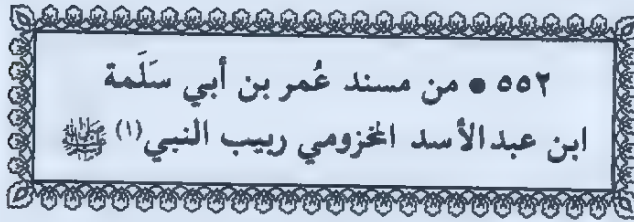 ٥٥٢ ● من مسند عُمر بن أبي سَلَمة
ابن عبدالأسد المخزومي ربيب النبي(١) ﷺ